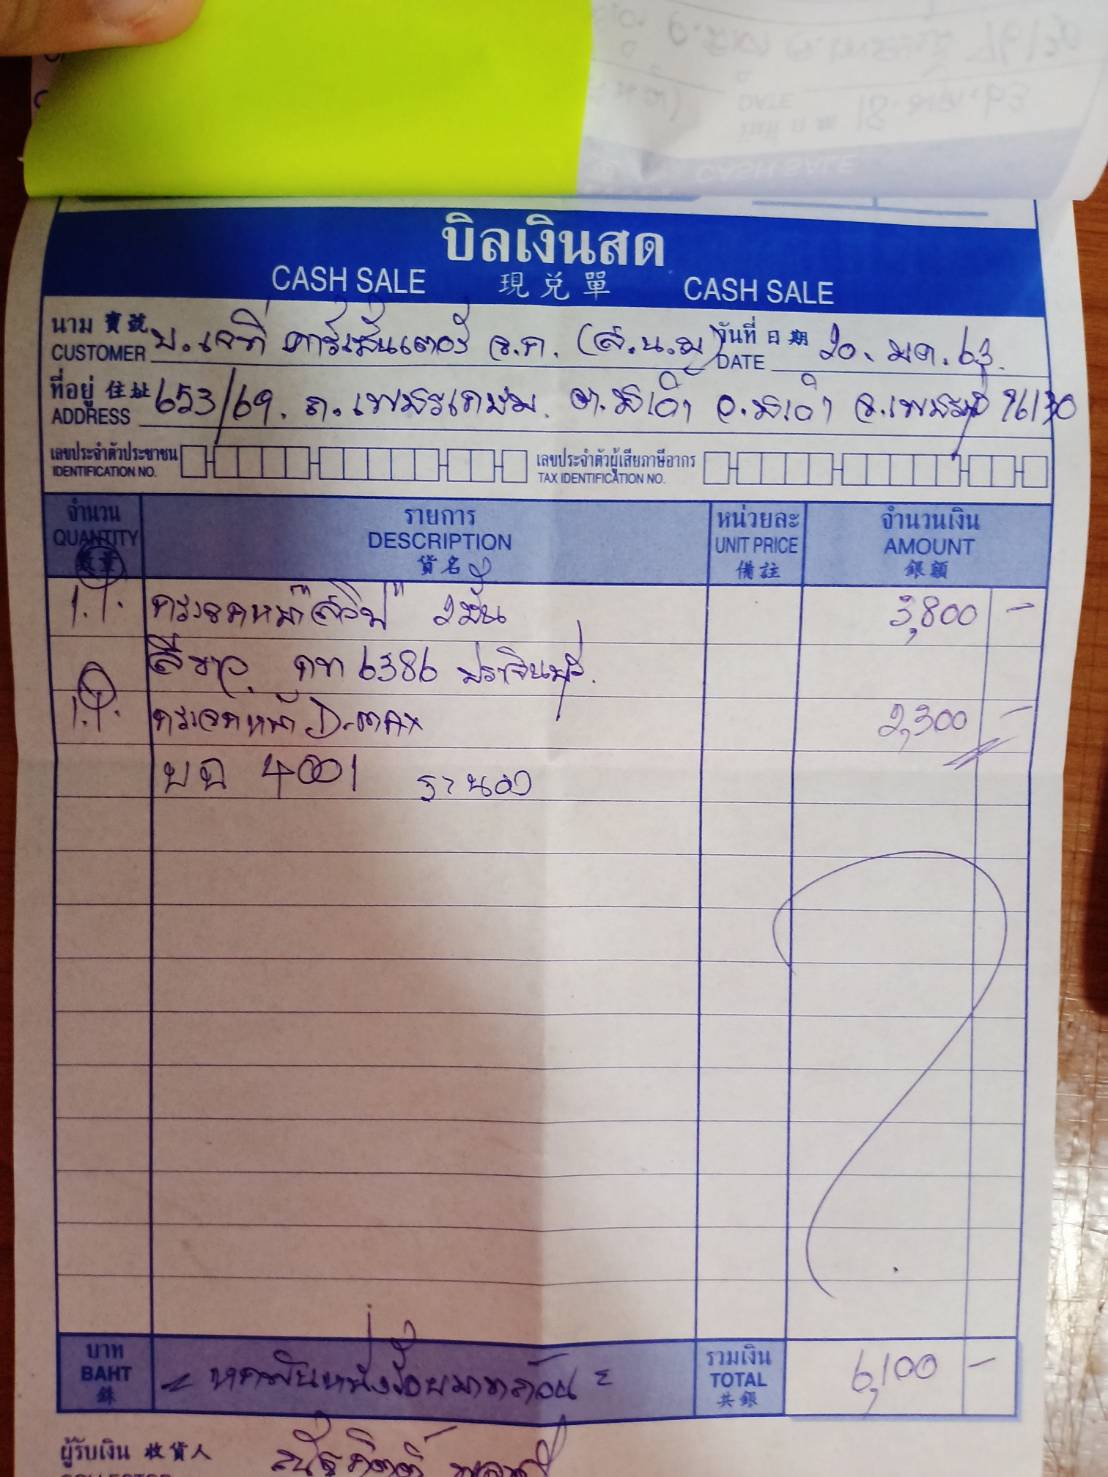 บิลเงินสด
CASH SALE 現兌單 CASH SALE
นาม 寶號 CUSTOMER บ.เจที คาร์เซ็นเตอร์ จ.ก. (ส.น.ญ) วันที่ 日期 DATE 20. มค. 63.
ที่อยู่ 住址 ADDRESS 653/69. ถ.เพชรเกษม. อ. จ.เพชรบุรี 76130
เลขประจำตัวประชาชน เลขประจำตัวผู้เสียภาษีอากร
IDENTIFICATION NO. TAX IDENTIFICATION NO.
จำนวน รายการ หน่วยละ จำนวนเงิน
QUANTITY DESCRIPTION UNIT PRICE AMOUNT
數量 貨名 備註 銀額
กระจกหน้า 3,800 -
สีขาว 6386 ปราจีนบุรี.
กระจกหน้า D-max 2,300 -
4001 ระนอง
บาท รวมเงิน
BAHT หกพันหนึ่งร้อยบาทถ้วน TOTAL 6,100 -
銖 共銀
ผู้รับเงิน 收貨人
COLLECTOR
CASH SALE